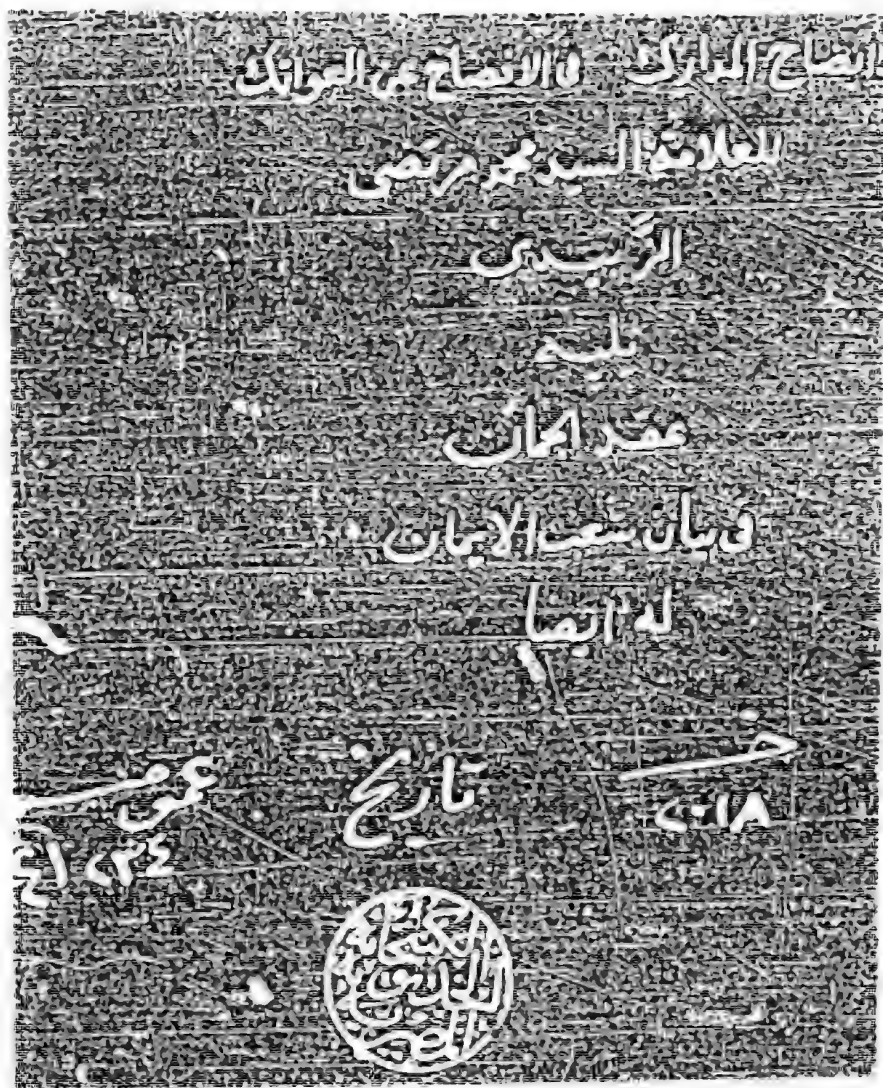 ايضاح المدارك في الافصاح عن العواتك
للعلامة السيد محمد مرتضى
الزبيدى
يليه
عقد الجمان
فى بيان شعب الايمان
له ايضا
تاريخ
٢٠١٨
الكتبخانة
الخديوية
المصرية